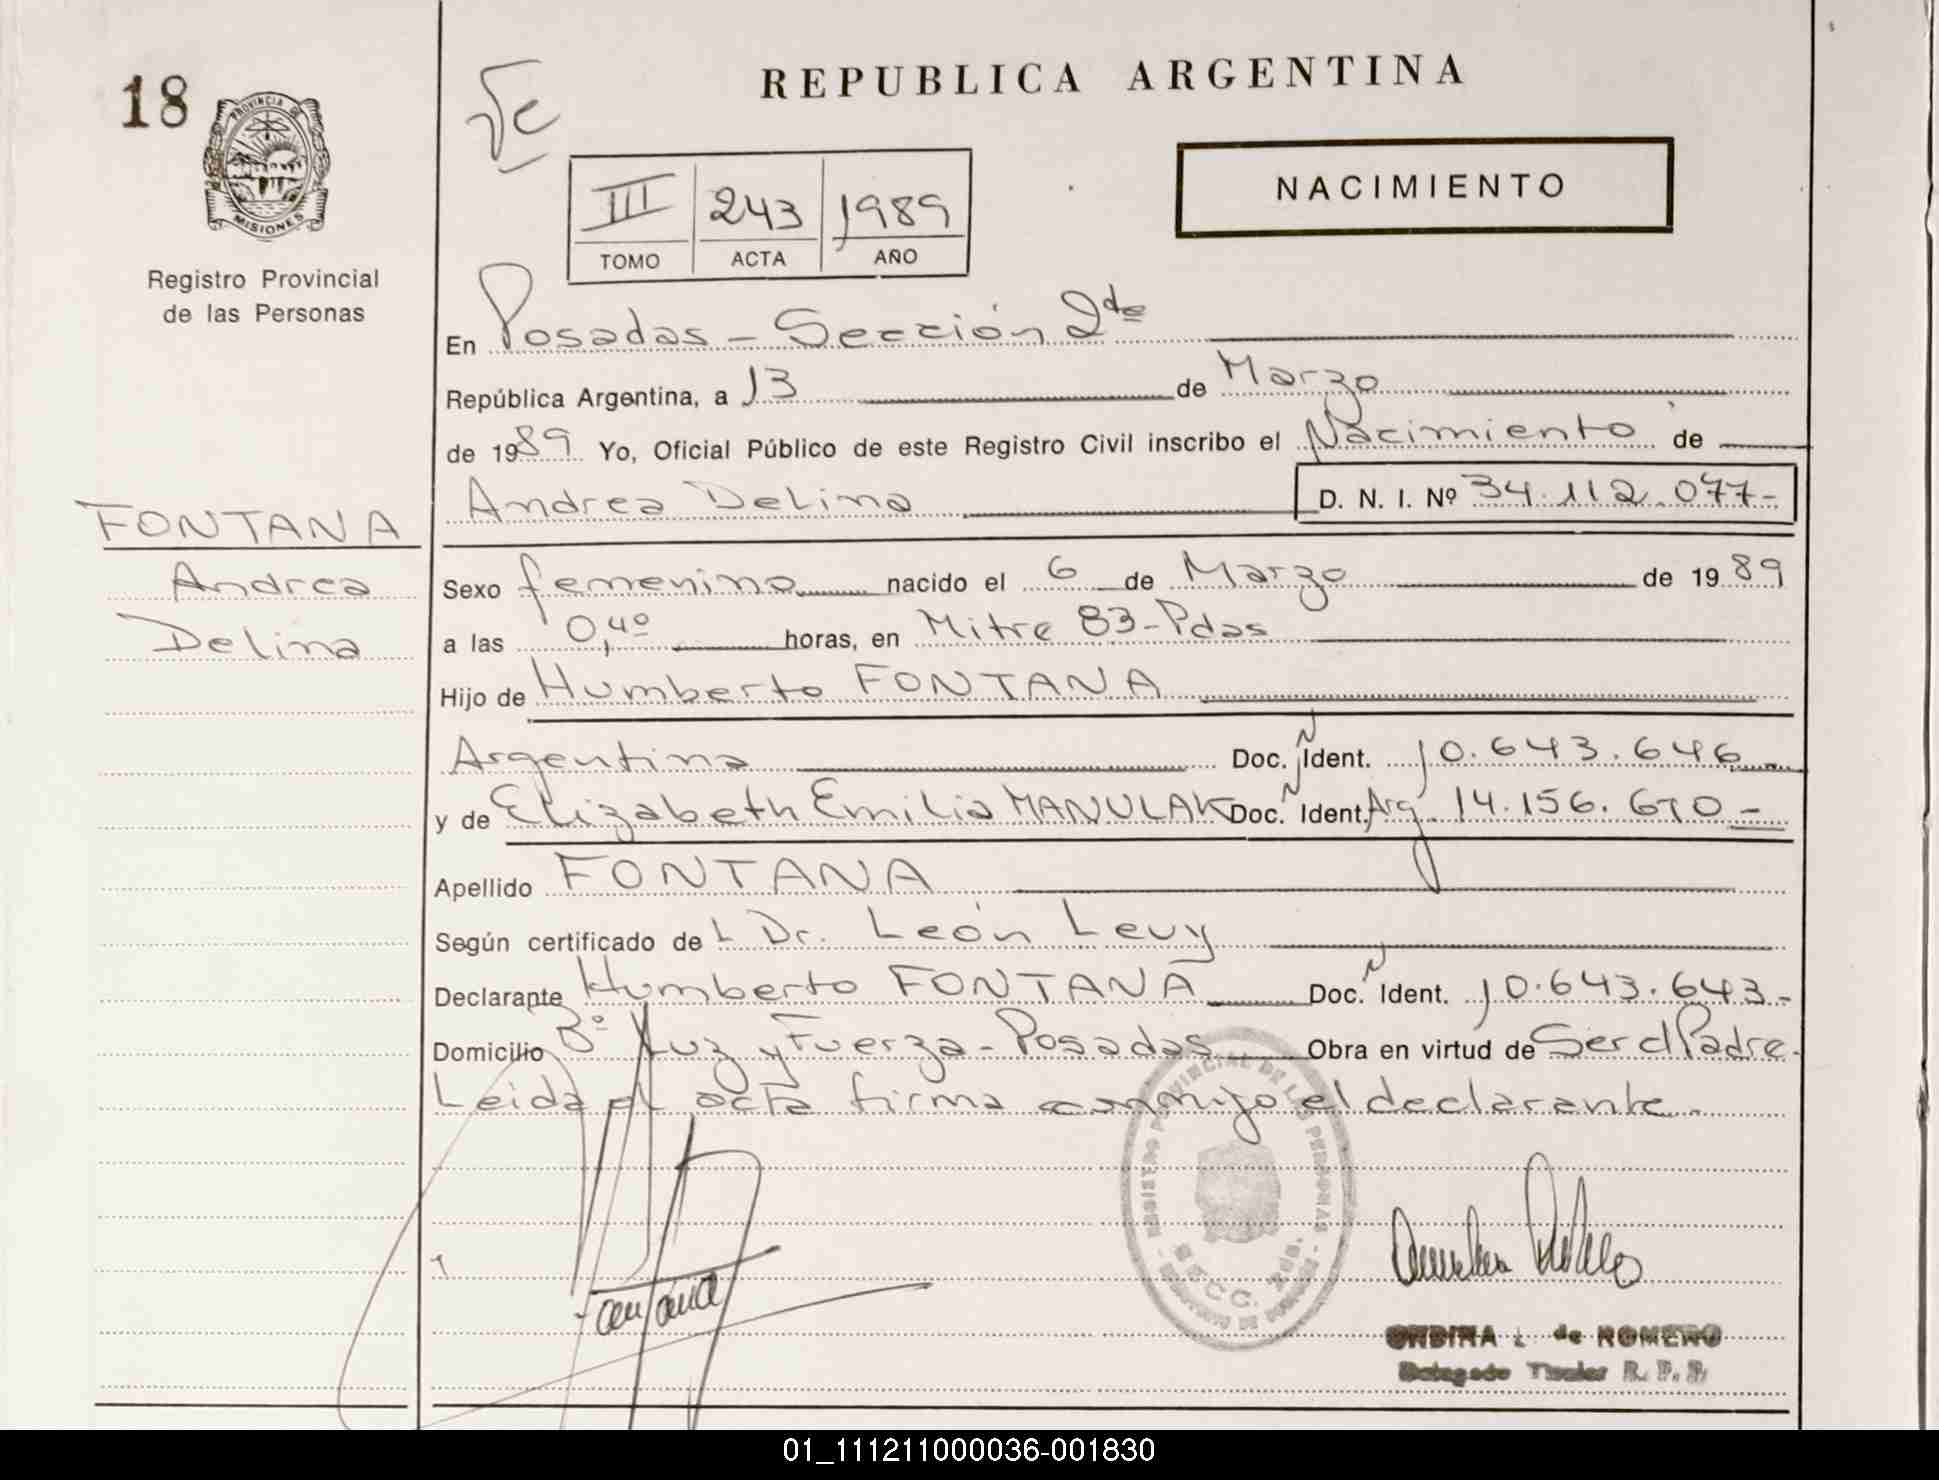 18
PROVINCIA DE
MISIONES
Registro Provincial
de las Personas
REPUBLICA ARGENTINA
NACIMIENTO
III 243 1989
TOMO ACTA AÑO
En Posadas - Sección 2da
República Argentina, a 13 de Marzo
de 1989 Yo, Oficial Público de este Registro Civil inscribo el Nacimiento de
Andrea Delina D. N. I. Nº 34.112.077-
FONTANA
Andrea
Delina
Sexo femenino nacido el 6 de Marzo de 1989
a las 0,40 horas, en Mitre 83-Pdas
Hijo de Humberto FONTANA
Argentina Doc. Ident. 10.643.646
y de Elizabeth Emilia MANULAK Doc. Ident. Arg. 14.156.670-
Apellido FONTANA
Según certificado del Dr. León Levy
Declarante Humberto FONTANA Doc. Ident. 10.643.643-
Domicilio Bº Luz y Fuerza - Posadas Obra en virtud de Ser el Padre.
Leida el acta firma conmigo el declarante.
REGISTRO PROVINCIAL DE LAS PERSONAS
SECC. 2da.
ONDINA L. de ROMERO
Delegado Titular R. P. P.
01_111211000036-001830